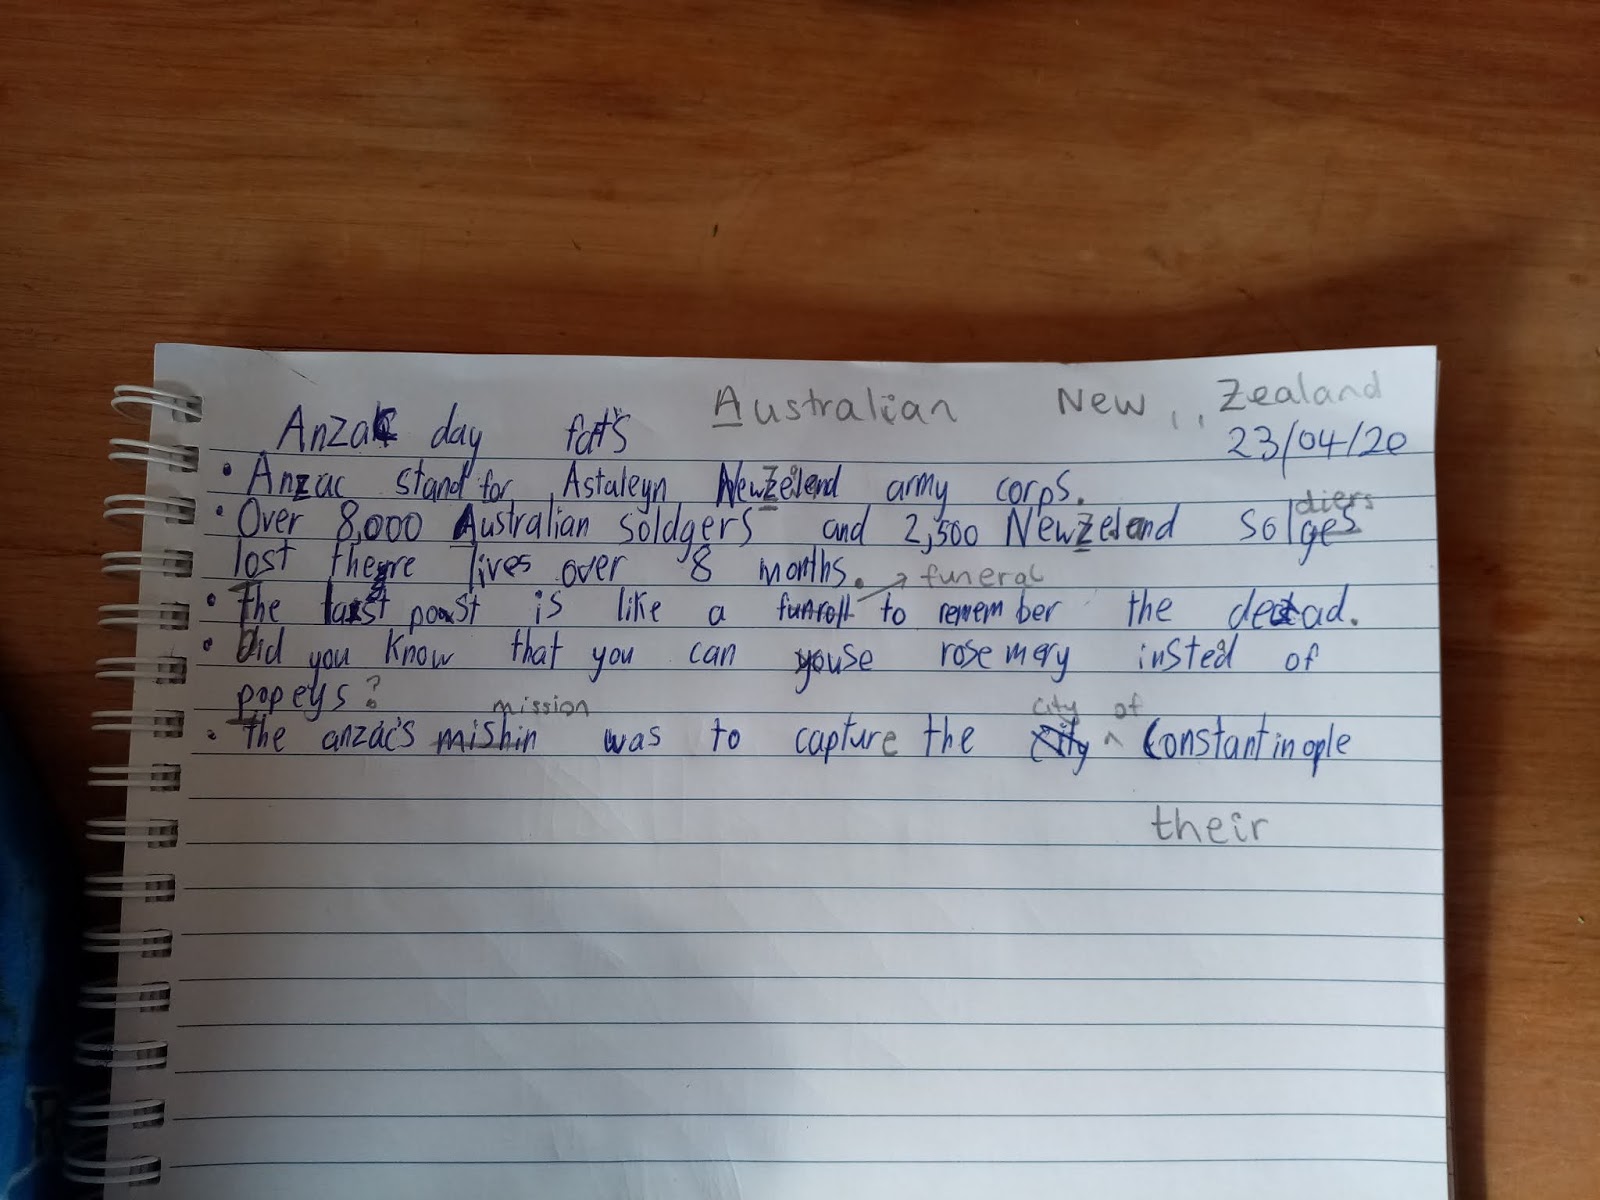 Australian New Zealand
Anzac day fats 23/04/20
• Anzac stand for Astaleyn New Zeilend army corps.
diers
• Over 8,000 Australian soldgers and 2,500 New Zelend solges
lost theyre lives over 8 months. funeral
• The last post is like a funroll to remember the dead.
• Did you know that you can youse rosemery insted of
popeys?
mission city of
• The anzac's mishin was to capture the city ^ Constantinople
their